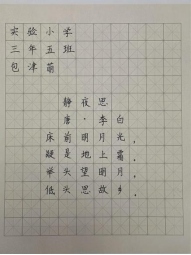 实验小学
三年五班
包津萌
静夜思
唐·李白
床前明月光,
疑是地上霜.
举头望明月,
低头思故乡.